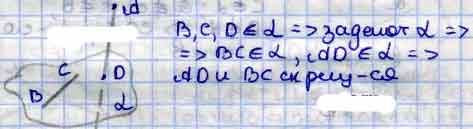 A
B, C, D ∈ α => задают α =>
=> BC ∈ α, AD ∈ α =>
AD и BC скрещ-ся
C
D
B
α